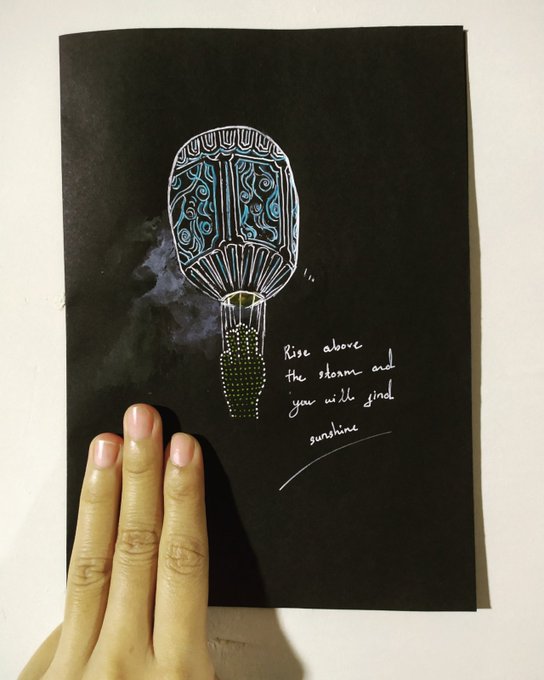 Rise above
the storm and
you will find
sunshine